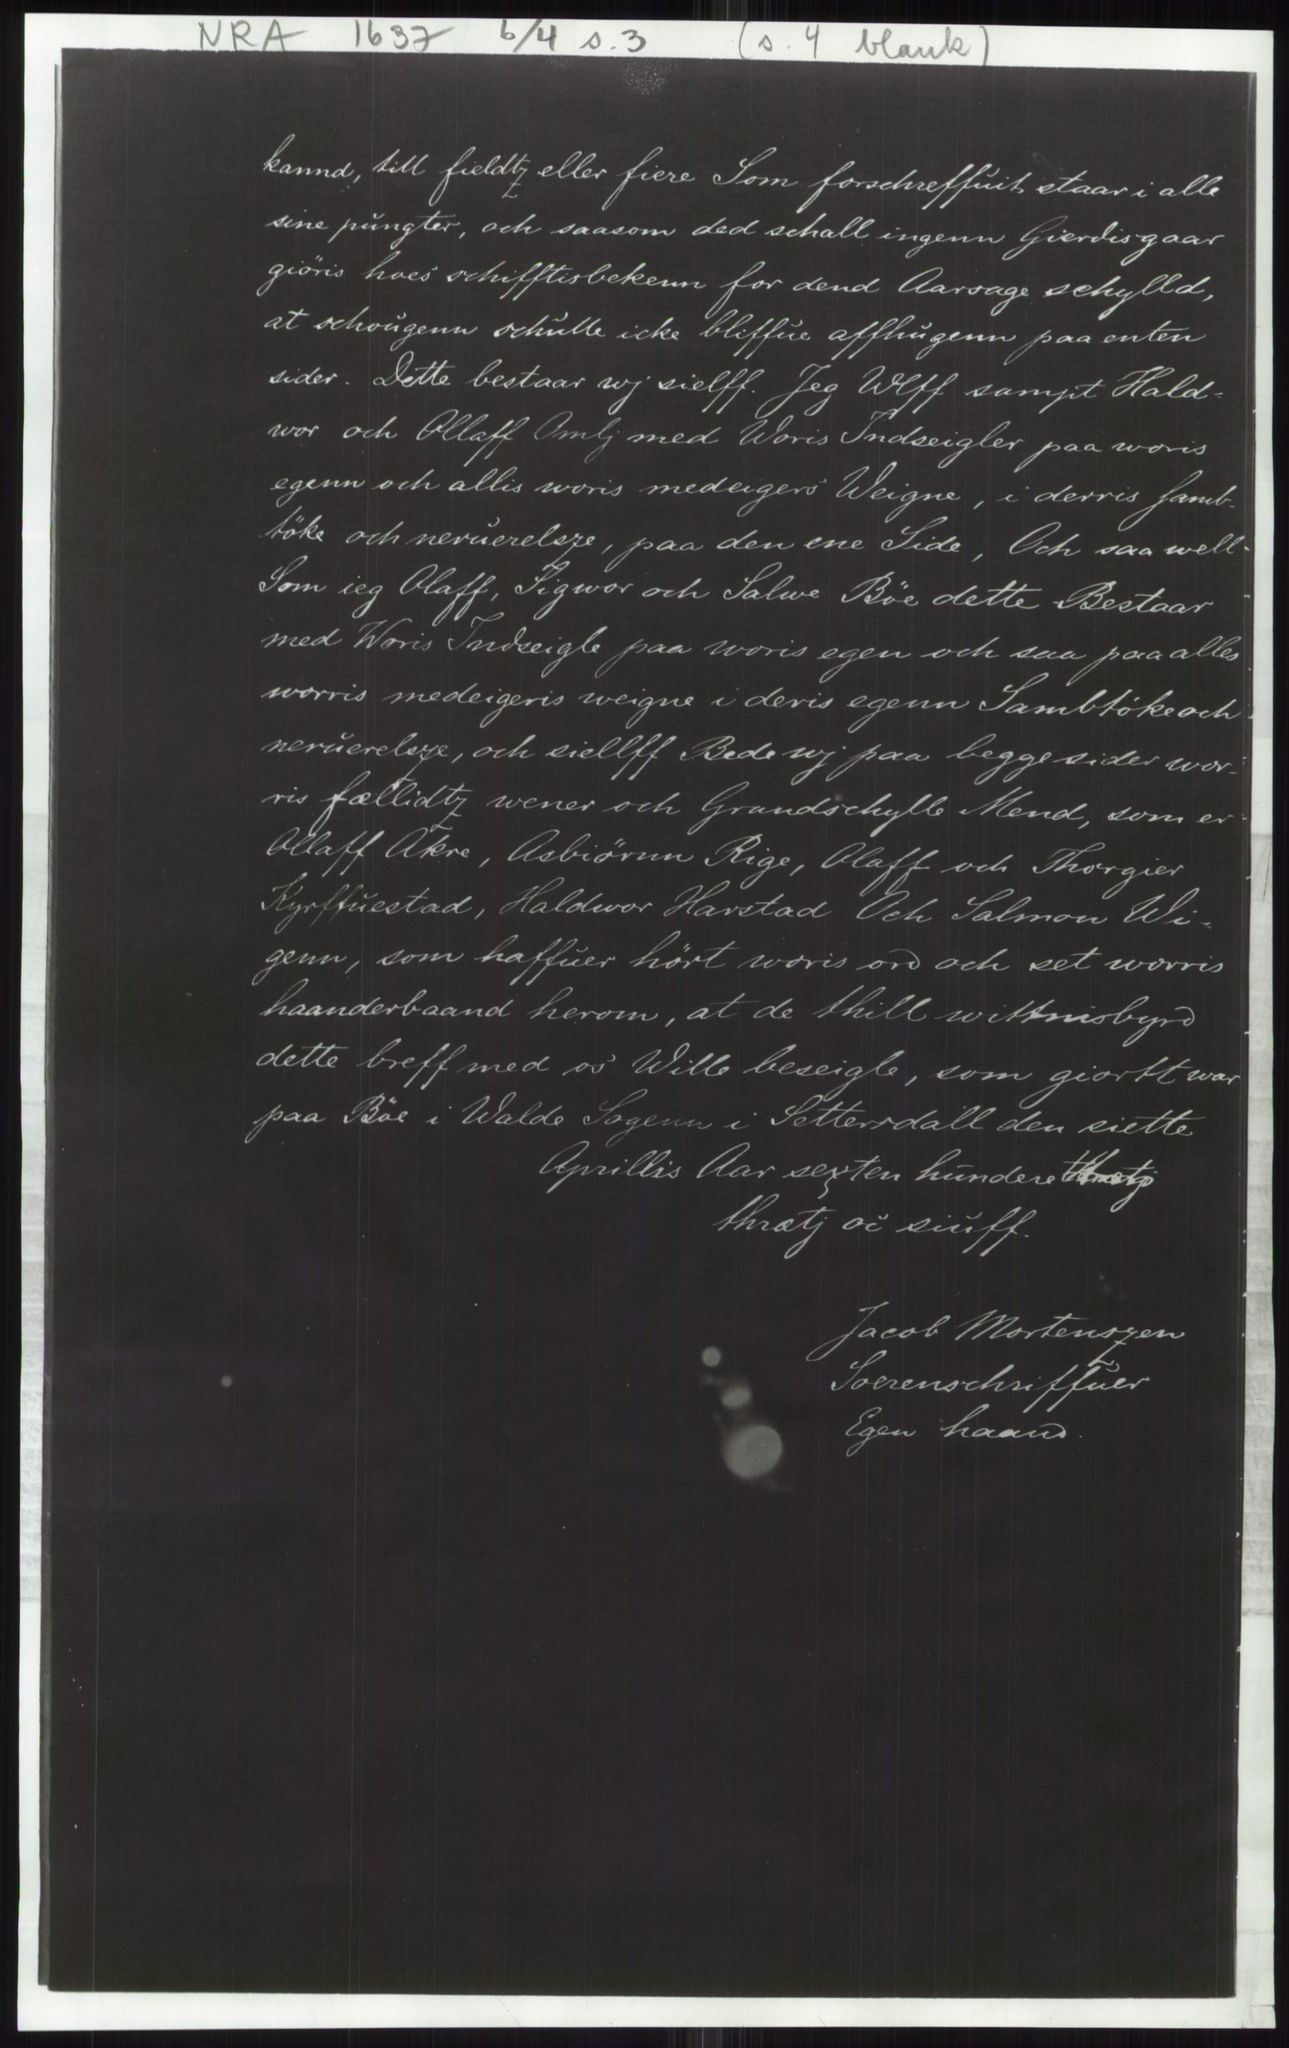 NRA 1637 6/4 s. 3 (s. 4 blank)
kannd, till fieldtz eller fiere Som forschreffuit staar i alle
sine pŭngter, och saasom ded schall ingenn Gierdisgaar
giöris hoes schifftisbekenn for dend Aarsage schylld,
at schoŭgenn schŭlle icke bliffue affhŭgenn paa enten
sider. Dette bestaar wj sielff. Jeg Wlff sampt Hald-
wor och Ollaff Omlj med Woris Indseigler paa woris
egenn och allis woris medeigers Weigne, i derris samb-
töke och neruerelsze, paa den ene Side, Och saa well-
Som ieg Olaff, Sigwor och Salwe Böe dette Bestaar
med Woris Indseigle paa woris egen och saa paa alles
worris medeigeris weigne i deris egenn Sambtöke och
nerŭerelsze, och siellff Bede wj paa begge sider wor-
ris fœllidtz wener och Grandschylle Mend, som er
Ollaff Åkre, Asbiörnn Rige, Olaff och Thorgier
Kyrffŭestad, Haldwor Harstad Och Salmon Wi-
genn, som haffŭer hört woris ord och set worris
haanderbaand herom, at de thill wittnisbyrd
dette breff med os Wille beseigle, som giortt war
paa Böe i Walde Sogenn i Settersdall den siette
Aprillis Aar sexten hŭndere
thrætj oc siŭff.
Jacob Mortenszen
Soerenschriffŭer
Egen haand.